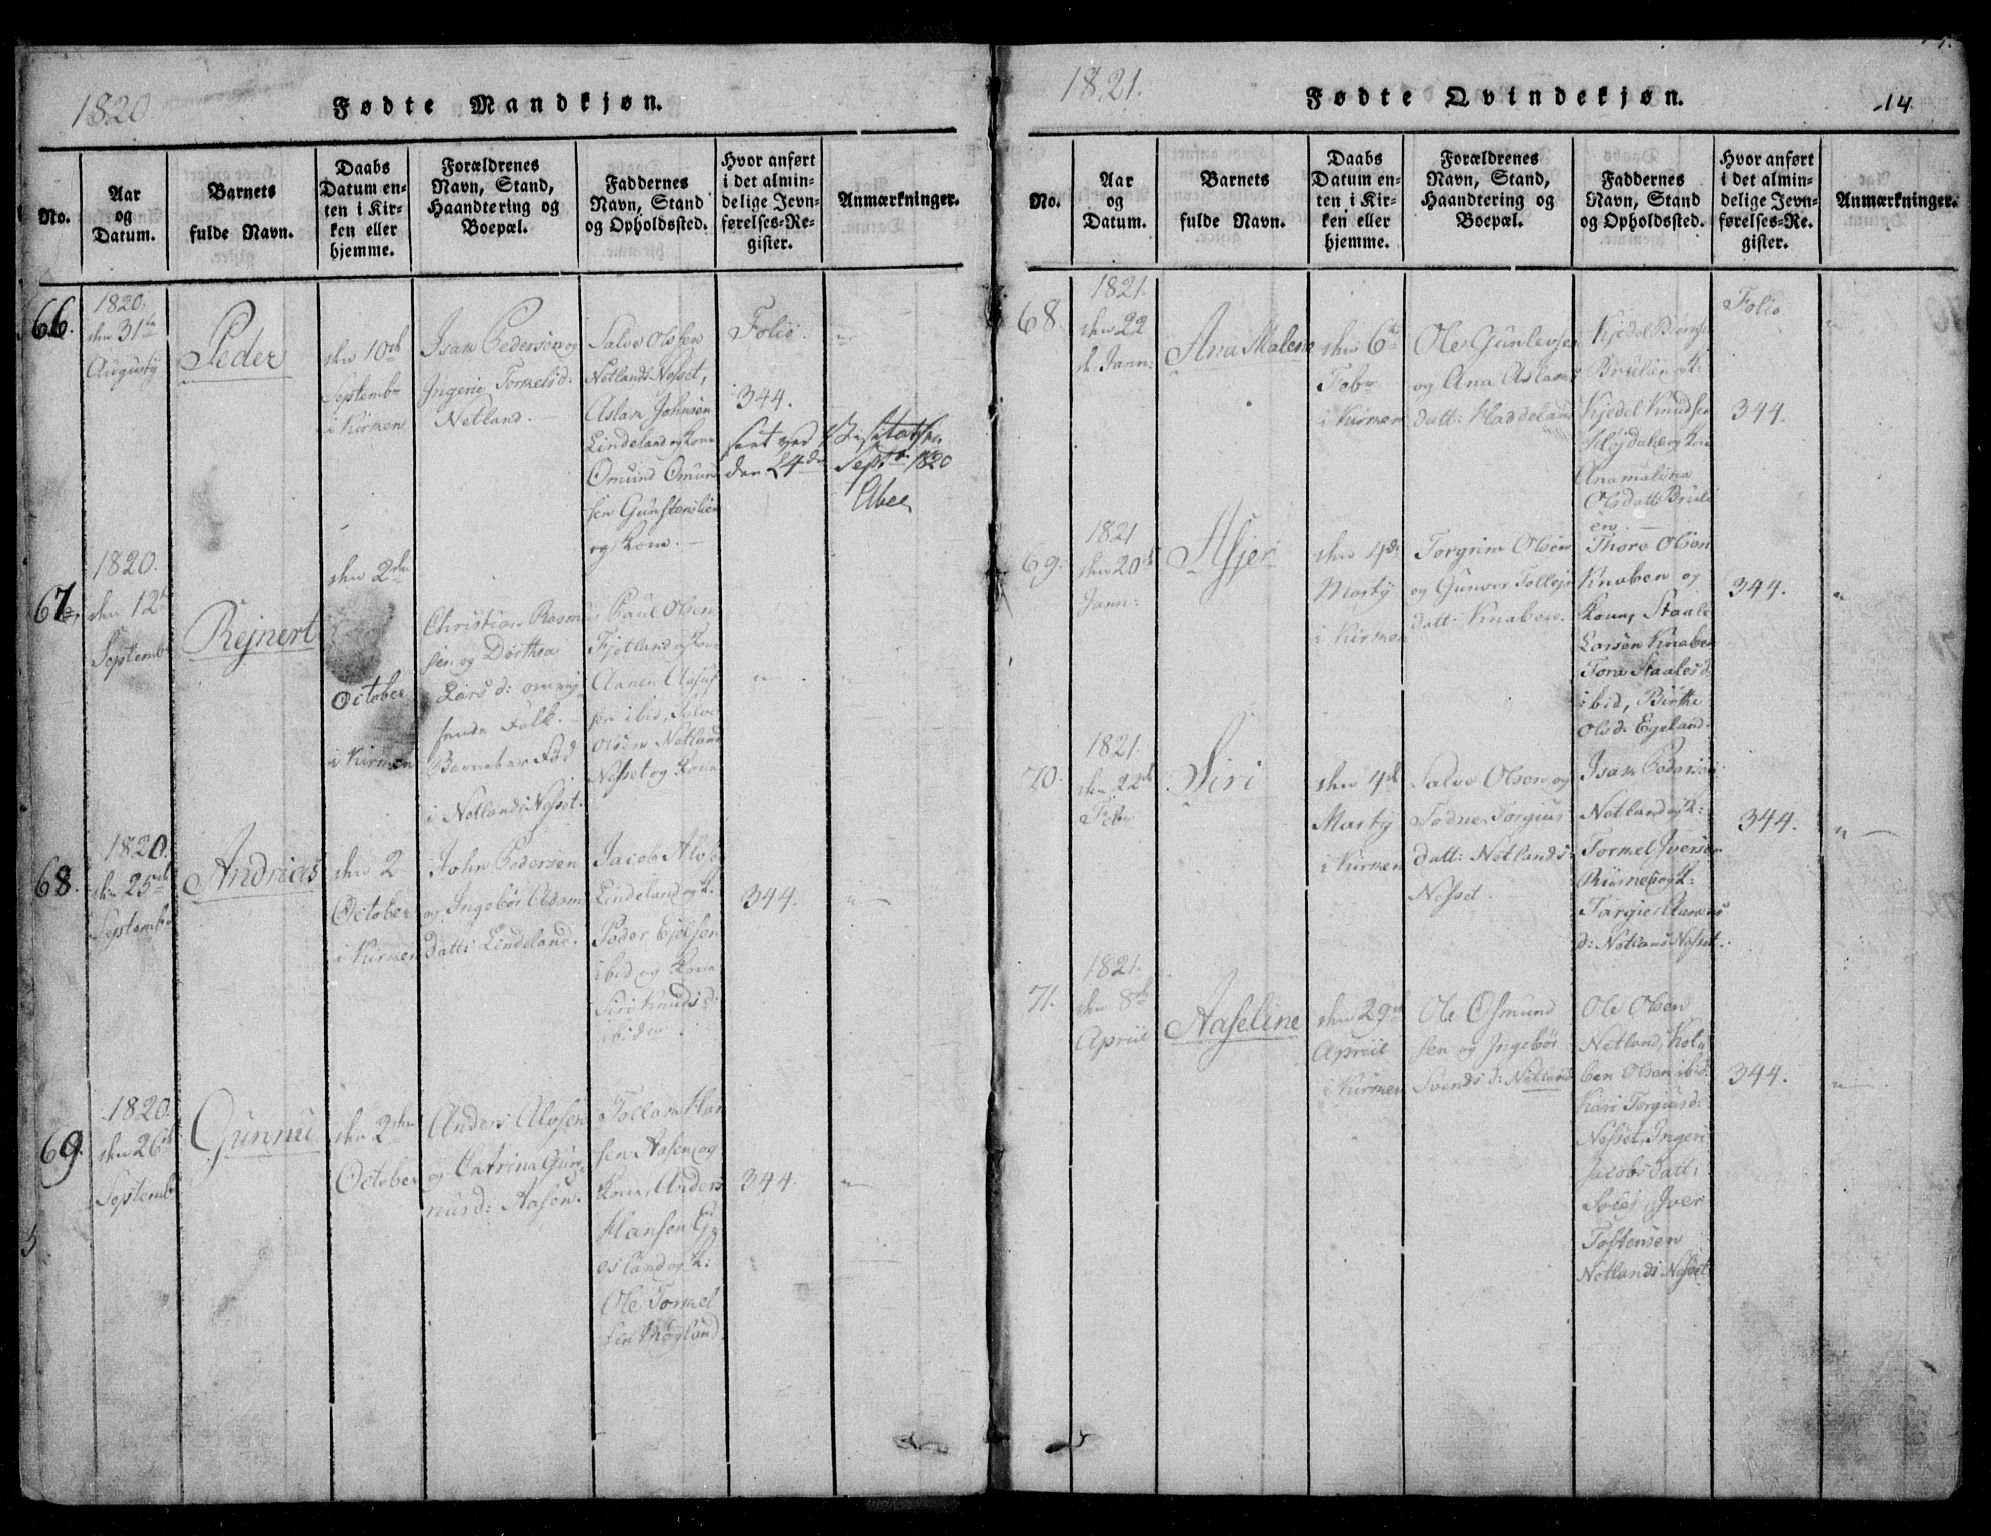 1820
Fødte Mandkjøn.
No.
Aar
og
Datum.
Barnets
fulde Navn.
Daabs
Datum en-
ten i Kir-
ken eller
hjemme.
Forældrenes
Navn, Stand,
Haandtering og
Boepæl.
Faddernes
Navn, Stand
og Opholdssted.
Hvor anført
i det almin-
delige Jevn-
førelses-Re-
gister.
Anmærkninger.
66.
1820.
den 31te
Augusty
Peder
den 10de
Septembr
i Kirmen
Isak Pedersen og
Ingerie Tormelsd:
Netland.
Salve Olsen
Netlands Nesset,
Aslak Johnsen
Lindeland og Kone
Omund Omund
sen Gunstenslien
og Kone.
Folio.
344.
seet ved Visitatsen
den 24de Septbr 1820
67.
1820.
den 12te
Septembr
Rejnert
den 2den
October
i Kirmen
Christian Rasmu
sen og Dorthea
Lars d: omrej
sende Folk.
Barnet er Fød
i Netlands Nesset.
Paul Olsen
Fjotland og Kone
Aanen Aasuf
sen ibid, Salve
Olsen Netland
Nesset og Kone
"
68.
1820.
den 25de
Septembr
Andrias
den 2
October
i Kirmen
John Pedersen
og Ingebor Adam
datt: Lindeland.
Jacob Alvse
Lindeland og K.
Peder Ejelsen
ibid og Kone
Siri Knudsd:
ibidm
344.
"
69.
1820.
den 26de
Septembr
Gunnu
den 2den
October
Anders Alvsen
og Catrina Gun
nusd: Aasen.
Tollak Han
sen Aasen og
Kone, Anders
Hansen Ej
esland og K:
Ole Tormel
sen Møgland.
344.
"
1821.
Fødte Qvindekjøn.
14
No.
Aar
og
Datum.
Barnets
fulde Navn.
Daabs
Datum en-
ten i Kir-
ken eller
hjemme.
Forældrenes
Navn, Stand,
Haandtering og
Boepæl.
Faddernes
Navn, Stand
og Opholdssted.
Hvor anført
i det almin-
delige Jevn-
førelses-Re-
gister.
Anmærkninger.
68.
1821.
den 22
Jann:
Ana Malene
den 6te
Febr
i Kirmen
Ole Gunlevsen
og Ana Aslaks
datt: Haddeland
Kjedel
Knudsen
og Kone
Anamalena
Olsdatt: Brüli
en.
Folio
344.
"
69.
1821
den 20de
Jann:
Asjer
den 4de
Marty
i Kirmen
Torgrim Olsen
og Gunvor Tollejs
datt: Knaben.
Thore Olsen
Knaben og
Kone, Staale
Larsen Knaben
Tora Staalesd.
ibid, Birthe
Olsd. Egeland.
344.
"
70.
1821.
den 22de
Febr
Siri
den 4de
Marty
i Kirmen
Salve Olsen og
Todne Torgius
datt: Netlands
Nesset.
Isak Pedersen
Netland og K:
Tormel Iversen
og K:
Torgier Aanens
d: Netlands Nesset.
344.
"
71.
1821.
den 8de
Apriil
Aaseline
den 29de
Apriil
i Kirmen
Ole Osmund
sen og Ingebor
Svends d: Netland
Ole Olsen
Netland, Kolu
ben Olsen ibid:
Kari Torgiusd:
Nesset, Ingeri
Jacobs datt:
Iver
Tostensen
Netlands Nesset
344.
"